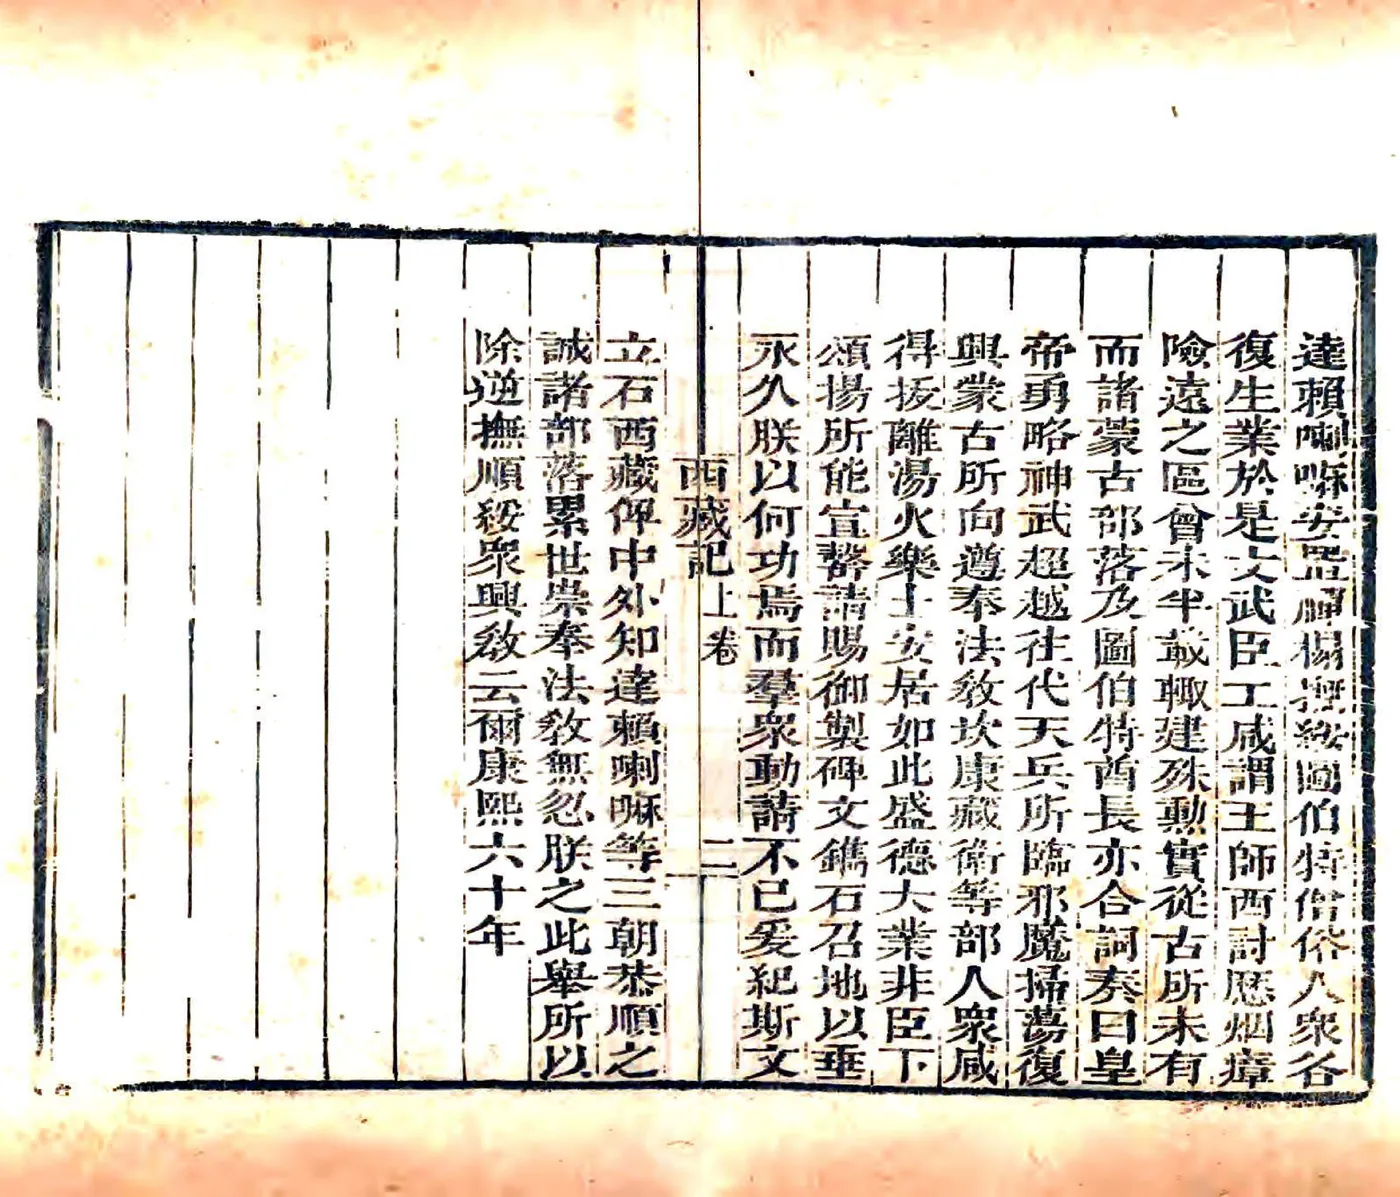 達賴喇嘛安置禪榻撫綏圖伯特僧俗人衆各
復生業於是文武臣工咸謂王師西討歷烟瘴
險遠之區曾未半載輒建殊勳實從古所未有
而諸蒙古部落乃圖伯特酋長亦合詞奏曰皇
帝勇略神武超越往代天兵所臨邪魔掃蕩復
興蒙古所向遵奉法敎坎康藏衛等部人衆咸
得拔離湯火樂土安居如此盛德大業非臣下
頌揚所能宣罄請賜御製碑文鐫石召地以垂
永久朕以何功焉而羣衆勤請不已爰紀斯文
西藏記上卷 二
立石西藏俾中外知達賴喇嘛等三朝恭順之
誠諸部落累世崇奉法敎無忽朕之此舉所以
除逆撫順綏衆興敎云爾康熙六十年